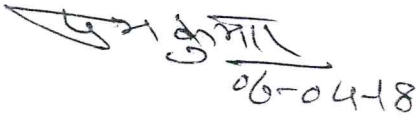 कुमार
06-04-18